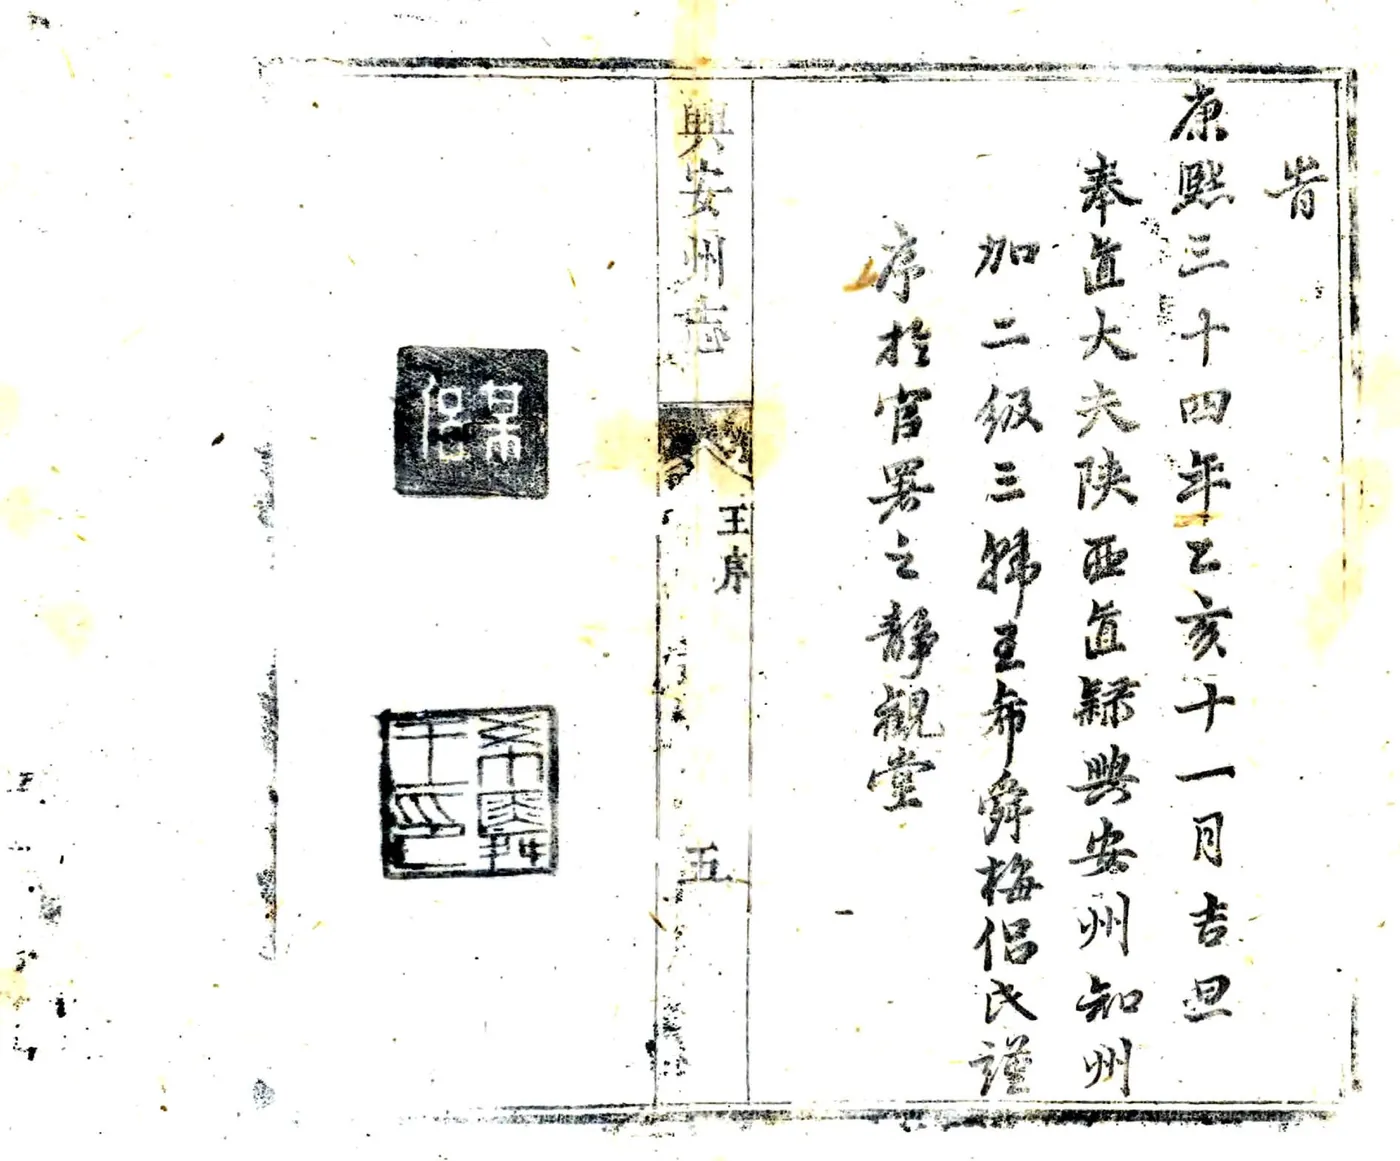 旹
康熙三十四年乙亥十一月吉旦
奉直大夫陝西直隸興安州知州
加二級三韓王希舜梅侶氏謹
序扵官署之靜觀堂
興安州志
王序
五
某侶
希舜王印